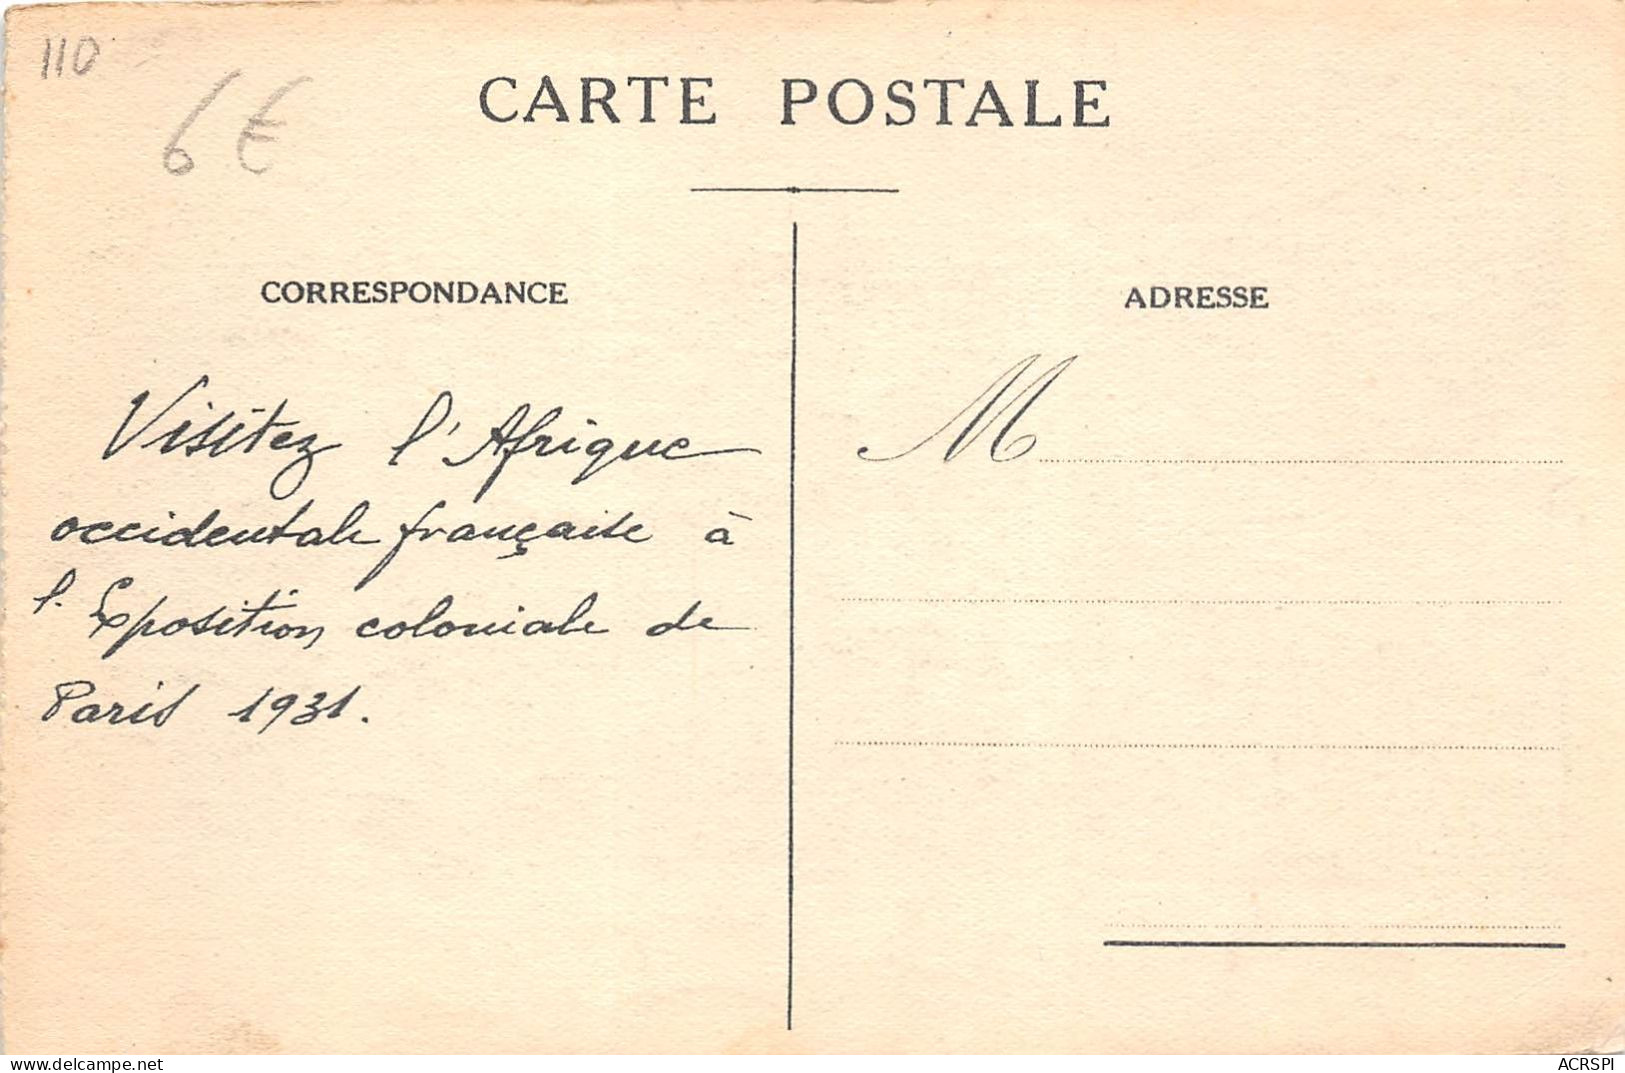 110
6 €
CARTE POSTALE
CORRESPONDANCE
Visitez l'Afrique
occidentale française à
l'Exposition coloniale de
Paris 1931.
ADRESSE
M
www.delcampe.net
ACRSPI